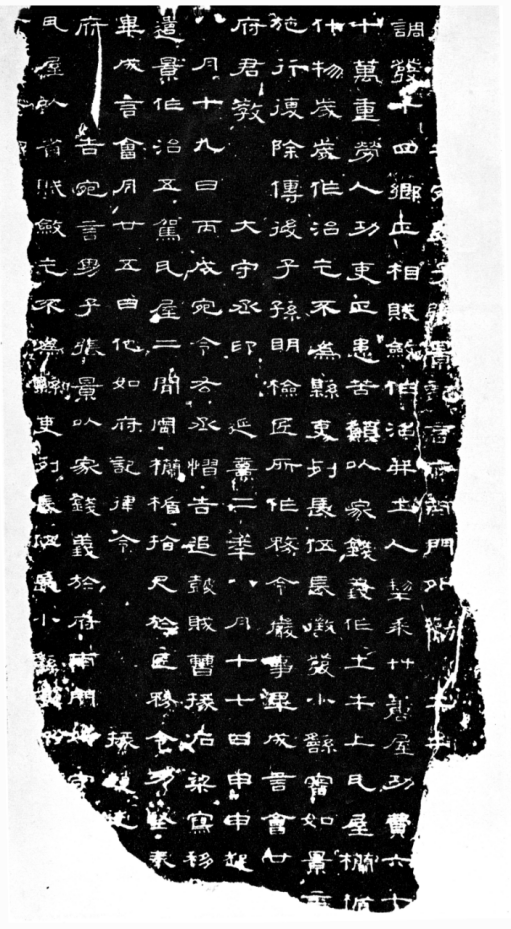 府告宛男子張景記言府南門外勸土牛
調發十四鄉正相賦斂作治并土人犁耒艸蓎屋功費六七
十萬重勞人功吏正患苦願以家錢義作土牛上瓦屋欄楯
什物歲歲作治乞不為縣吏列長伍長徵發小繇審如景言
施行復除傳後子孫明檢匠所作務令嚴事畢成言會廿
府君教　大守丞印　延熹二年八月十七日甲申起
八月十九日丙戌宛令右丞慴告追皷賊曹掾石梁寫移
遣景作治五駕瓦屋二間周欄楯拾尺於匠務令功堅奉
畢成言會月廿五日他如府記律令　掾趙述
府告宛言男子張景以家錢義於府南門外守
瓦屋以省賦斂乞不為縣吏列長伍長小繇